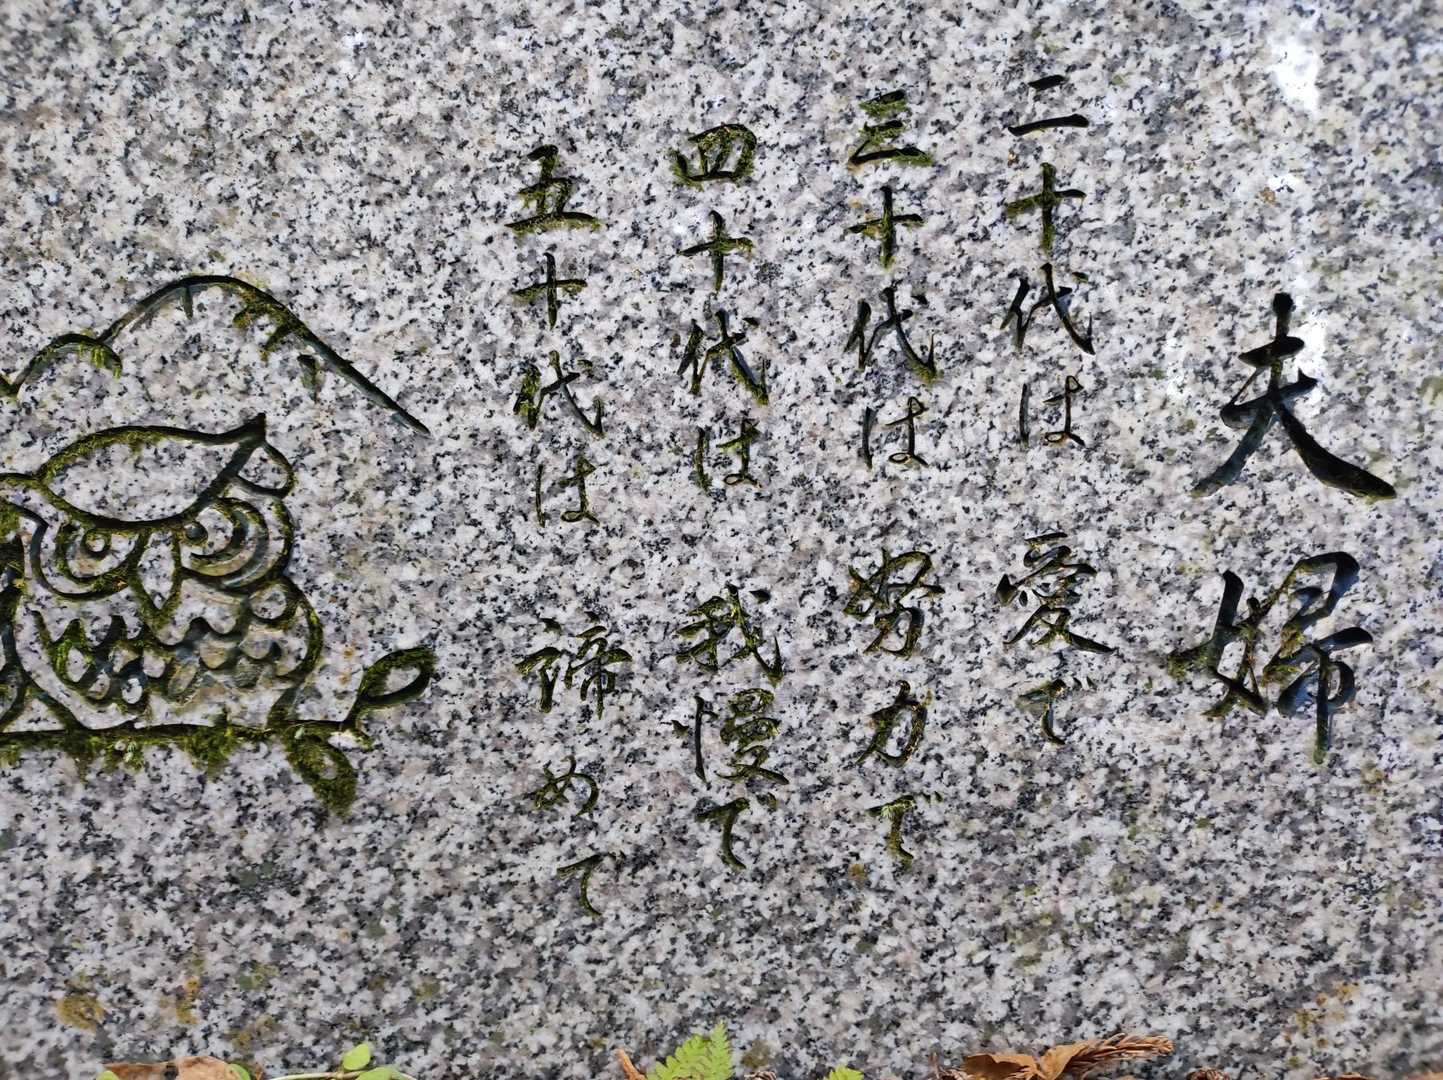 夫婦
二十代は 愛で
三十代は 努力で
四十代は 我慢で
五十代は 諦めて